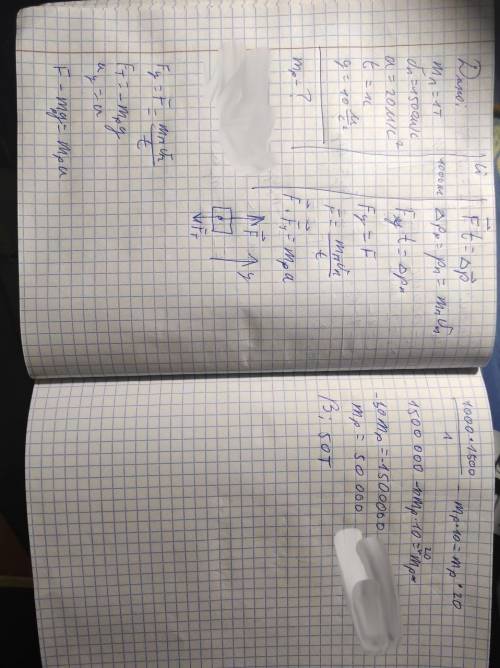 Дано:
mп = 1т
υп = 1500м/с
a = 20м/с²
t = 1с
g = 10 м/с²
mр - ?
Сі
1000кг
F⃗t = Δp⃗
Δpп = pп = mпυп
Fy t = Δpп
Fy = F
F = mпυп/t
F⃗ + F⃗т = mрa⃗
F⃗
y
F⃗т
Fy = F = mпυп/t
Fт = -mрg
ay = a
F - mg = mрa
1000·1500/1 - mр·10 = mр·20
1500000 - mр·10 = mр·20
-30mр = -1500000
mр = 50 000
В: 50т